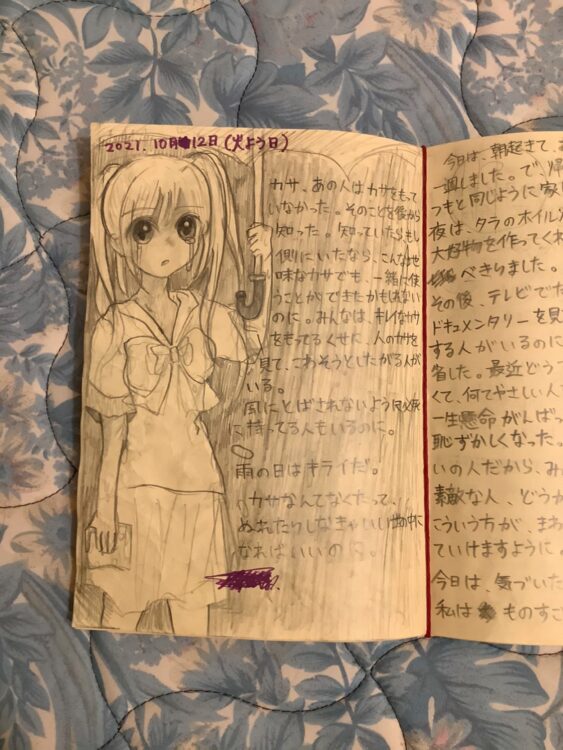 2021. 10月12日(火よう日)
カサ、あの人はカサをもって
いなかった。そのことを後から
知った。知っていたら、もし
側にいたなら、こんな地
味なカサでも、一緒に使
うことができたかもしれない
のに。みんなは、キレイなカサ
をもってるくせに、人のカサを
見て、こわそうとしたがる人が
いる。
風にとばされないように必死
に持ってる人もいるのに。
雨の日はキライだ。
カサなんてなくたって、
ぬれたりしなきゃいい世の中に
なればいいのに。
今日は、朝起きて、
一週しました。で、帰
つもと同じように家
夜は、タラのホイル
大好物を作ってくれ
べきりました。
その後、テレビで
ドキュメンタリーを見
する人がいるのに
省した。最近どう
くて、何てやさしい人
一生懸命がんばっ
恥ずかしくなった。
いの人だから、み
素敵な人、どうか
こういう方が、まわ
ていけますように。
今日は、気づいた
私は ものすご